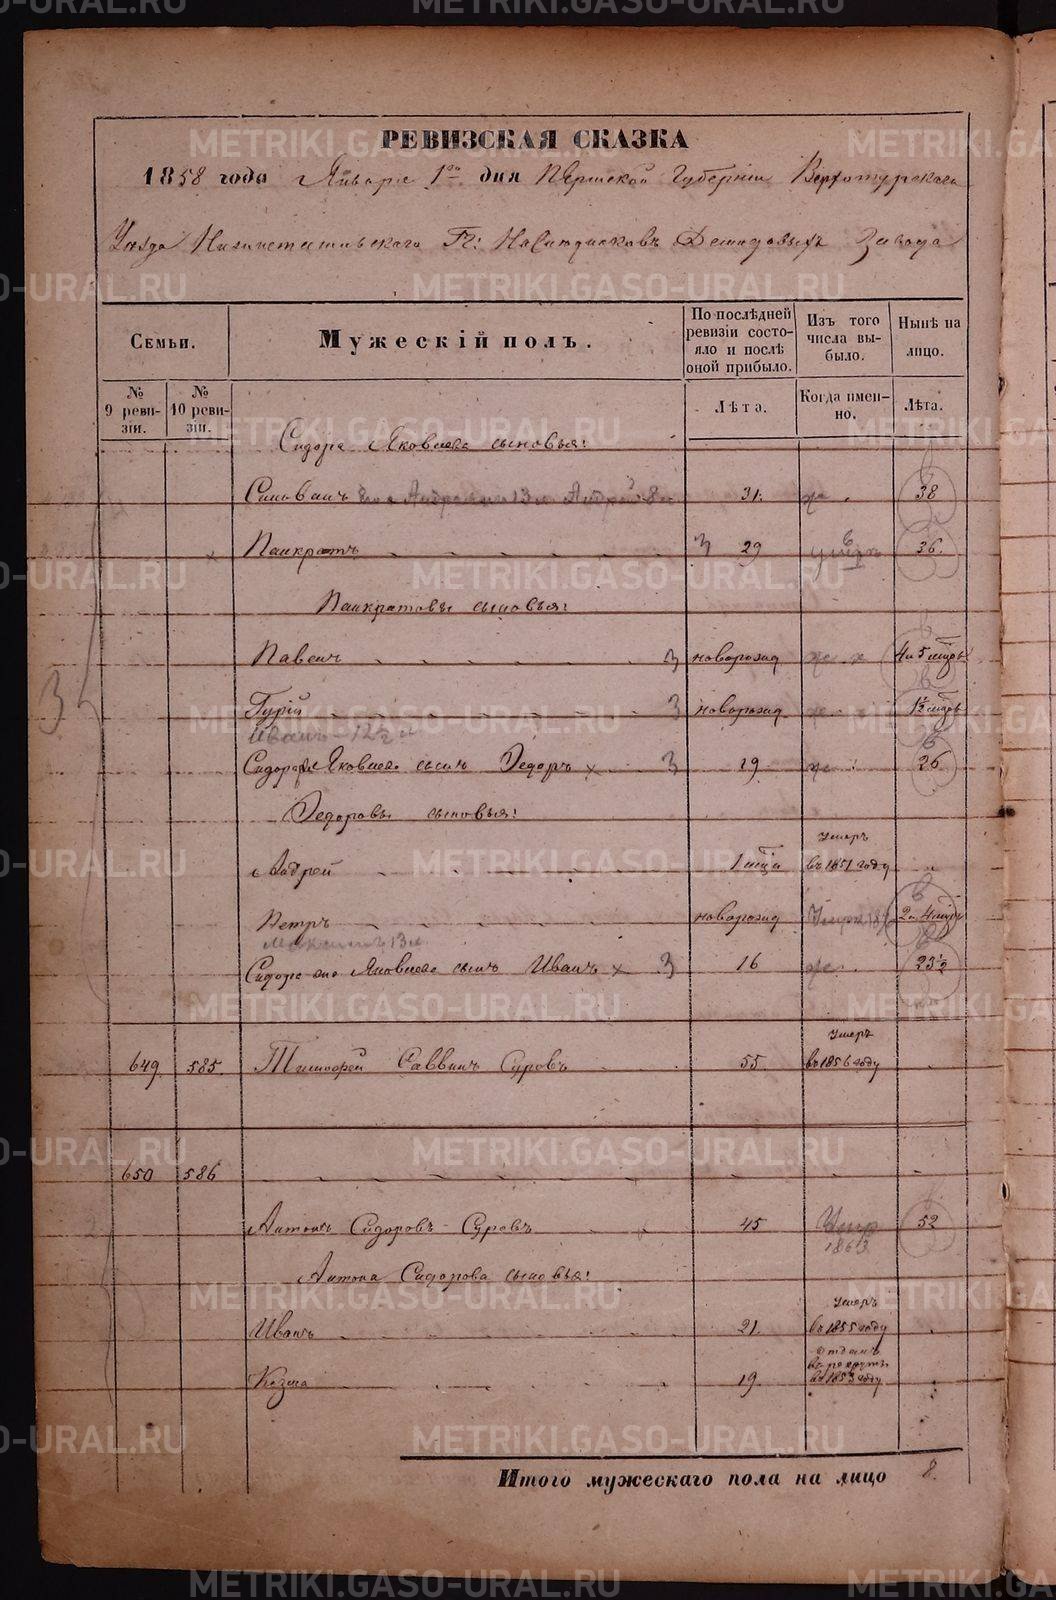 METRIKI.GASO-URAL.RU
РЕВИЗСКАЯ СКАЗКА
1858 года Января 1го дня Пермской Губернии Верхотурскаго
Уѣзда Нижнетагильскаго Гг: Наслѣдниковъ Демидовыхъ Завода
Семьи.
Мужескій полъ.
По послѣдней ревизіи состояло и послѣ оной прибыло.
Изъ того числа выбыло.
Нынѣ на лицо.
№ 9 ревизіи.
№ 10 ревизіи.
Лѣта.
Когда именно.
Лѣта.
Сидора Яковлева сыновья:
31. 38
Панкратъ 3 29 36.
Панкратовы сыновья:
Павелъ 3 новорожд 4 и 5 мцвъ
Гурій 3 новорожд 1½ мцвъ
Иванъ - 12½ л
Сидора Яковлева сынъ Ѳедоръ х 3 19 26
Ѳедоровы сыновья:
Андрей 1 мца умеръ въ 1851 году
Петръ новорожд 2 и 4 мцвъ
13 л
Сидора Яковлева сынъ Иванъ х 3 16 23½
3
649 585. Тимофей Саввинъ Суровъ 55. умеръ въ 1856 году
650 586
Антонъ Сидоровъ Суровъ 45 Умер 1863 52
Антона Сидорова сыновья:
Иванъ 21. умеръ въ 1855 году
Козма 19. отданъ въ рекруты въ 1853 году
Итого мужескаго пола на лицо 8.